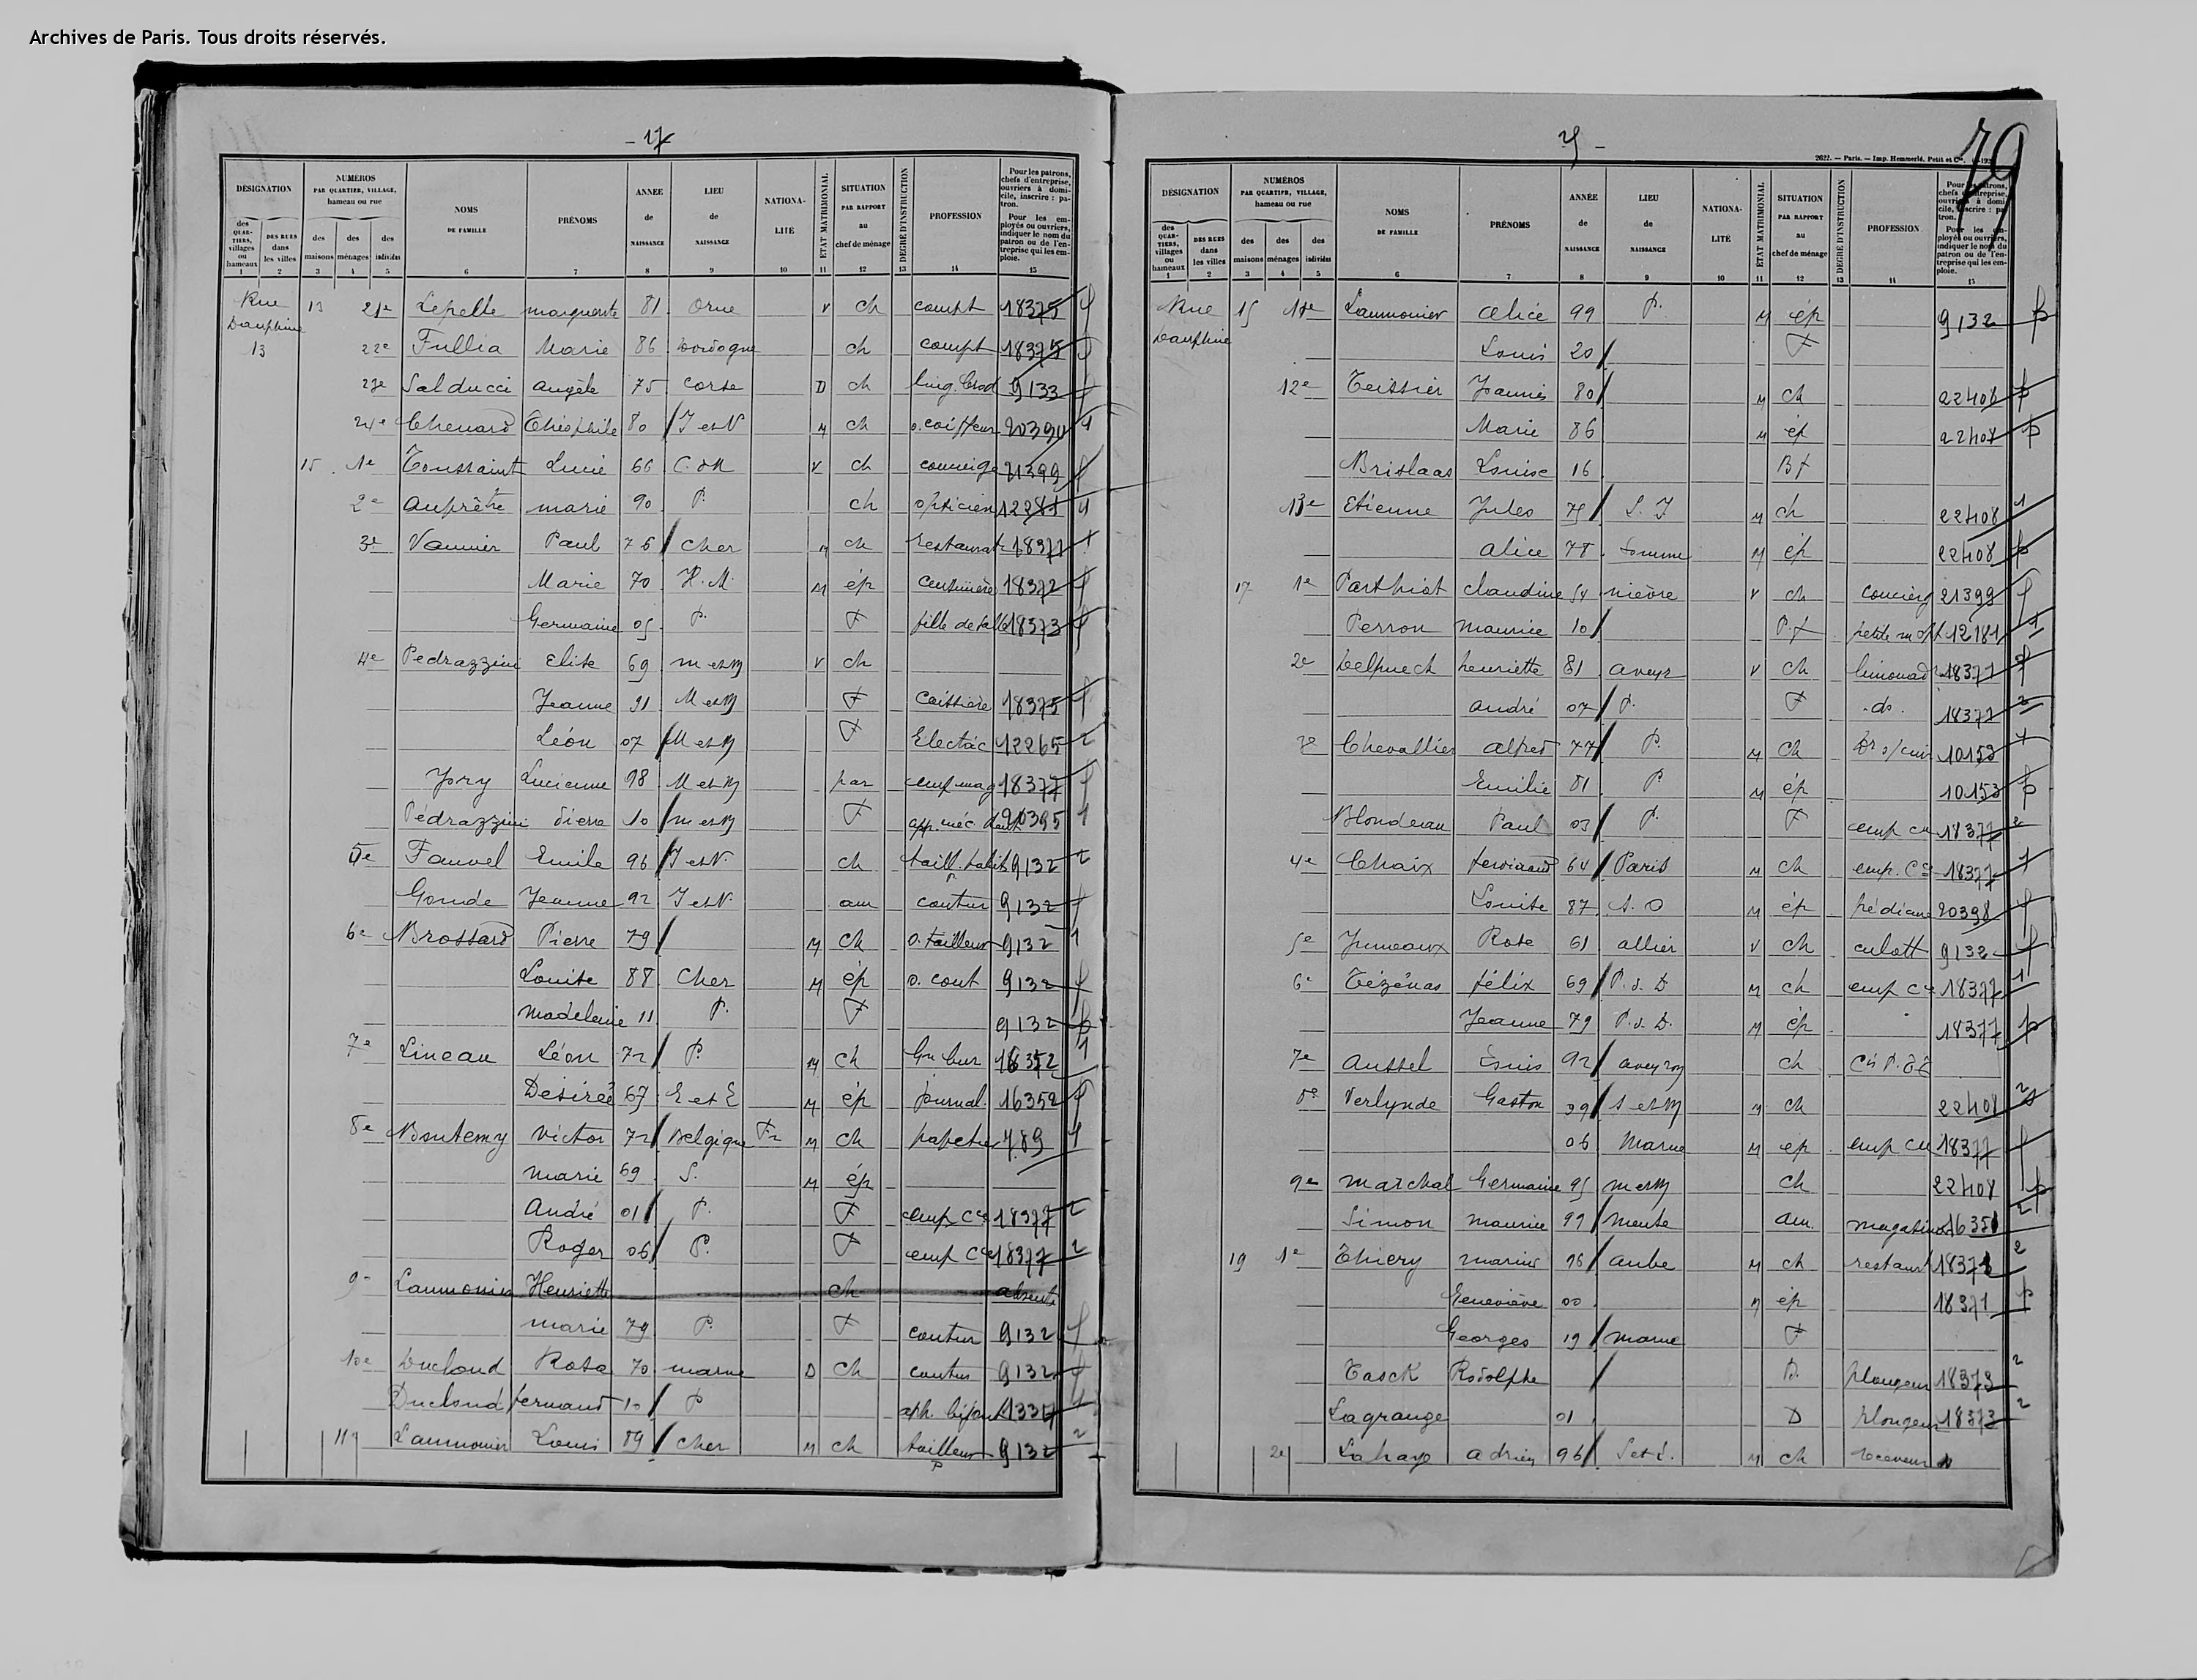 Archives de Paris. Tous droits réservés.
- 17
DÉSIGNATION
NUMÉROS PAR QUARTIER, VILLAGE, hameau ou rue
NOMS DE FAMILLE
PRÉNOMS
ANNÉE de NAISSANCE
LIEU de NAISSANCE
NATIONALITÉ
ÉTAT MATRIMONIAL
SITUATION PAR RAPPORT au chef de ménage
DEGRÉ D'INSTRUCTION
PROFESSION
Pour les patrons, chefs d'entreprise, ouvriers à domicile, inscrire : patron.
Pour les employés ou ouvriers, indiquer le nom du patron ou de l'entreprise qui les emploie.
des QUARTIERS, villages ou hameaux
DES RUES dans les villes
des maisons
des ménages
des individus
1 2 3 4 5 6 7 8 9 10 11 12 13 14 15
Rue Dauphine 13
13 21e Lepelle marguerite 81 Orne V ch compt 18375
22e Fullia Marie 86 Dordogne ch compt 18375
23e Salducci Angèle 75 Corse D ch 9133
24e Chenard Théophile 80 I et V M ch o. coiffeur 20390
15 1e Toussaint Lucie 66 V ch concierge 21399
2e Auprêtre marie 90 P. ch opticien
3e Vannier Paul 76 Cher M ch restaurat
Marie 70 H.M. M ép cuisinière 18372
Germaine 05 P. F fille de salle 18373
4e Pedrazzini Elise 69 M et M V ch
Jeanne 91 M et M F Caissière 18375
Léon 07 M et M F Electric 12265
Jory Lucienne 98 M et M par emp mag 18377
Pédrazzini 10 M et M F 20395
5e Fauvel Emile 96 I et V. ch taill. habits 9132
Gonde Jeanne 92 I et V. am coutur 9132
6e Brossard Pierre 79 M ch o. tailleur 9132
Louise 88 Cher M ép o. cout 9132
Madeleine 11 P. F 9132
7e Lineau Léon 72 P. M ch 16352
Désirée 67 E et L M ép journal. 16352
8e Bontemy Victor 72 Belgique Fr M ch papetier 789
marie 69 S. M ép
André 01 P. F emp Cce 18377
Roger 06 P. F emp Cce 18377
9e Laumonier Henriette ch absente
marie 79 P. F coutur 9132
10e Ducloud Rosa 70 marne D ch coutur 9132
Ducloud fernand 10 P
11e Laumonier Louis 89 Cher M ch tailleur 9132
79
2622. — Paris. — Imp. Hemmerlé, Petit et Cie.
DÉSIGNATION
NUMÉROS PAR QUARTIER, VILLAGE, hameau ou rue
NOMS DE FAMILLE
PRÉNOMS
ANNÉE de NAISSANCE
LIEU de NAISSANCE
NATIONALITÉ
ÉTAT MATRIMONIAL
SITUATION PAR RAPPORT au chef de ménage
DEGRÉ D'INSTRUCTION
PROFESSION
Pour les patrons, chefs d'entreprise, ouvriers à domicile, inscrire : patron.
Pour les employés ou ouvriers, indiquer le nom du patron ou de l'entreprise qui les emploie.
des QUARTIERS, villages ou hameaux
DES RUES dans les villes
des maisons
des ménages
des individus
1 2 3 4 5 6 7 8 9 10 11 12 13 14 15
Rue Dauphine
15 11e Laumonier Alice 99 P. M ép 9132
Louis 20 F
12e Teissier 80 M ch 22408
Marie 86 M ép 22408
Brislaas Louise 16
13e Etienne Jules 75 S.I M ch 22408
Alice 78 Somme M ép 22408
17 1e Parthiot claudine 54 nièvre V ch concierg 21399
Perron maurice 10 P.f
2e Delpuech henriette 81 aveyr V ch limonad 18377
André 07 P. F do. 18377
3e Chevallier Alfred 77 P. M ch 10153
Emilie 81 P M ép 10153
Blondeau Paul 03 P. F 18377
4e Chaix ferdinand 64 Paris M ch emp. Cce 18377
Louise 87 S.O M ép pédicure 20398
5e Jumeaux Rose 61 allier V ch culott 9132
6e Tézénas félix 69 P.d.D M ch emp Cce 18377
Jeanne 79 P.d.D. M ép 18377
7e Aussel Louis 92 aveyron ch
8e Verlynde Gaston 99 S et M M ch 22408
06 Marne M ép 18377
9e Marchal Germaine 95 M et M ch 22408
Simon maurice 99 am. 16351
19 1e Thiery marius 96 aube M ch restaurt 18371
Geneviève 00 M ép 18371
Georges 19 marne F
Tasck Rodolphe D. plongeur 18373
Lagrange 01 D plongeur 18373
2e Lahaye Adrien 96 M ch receveur